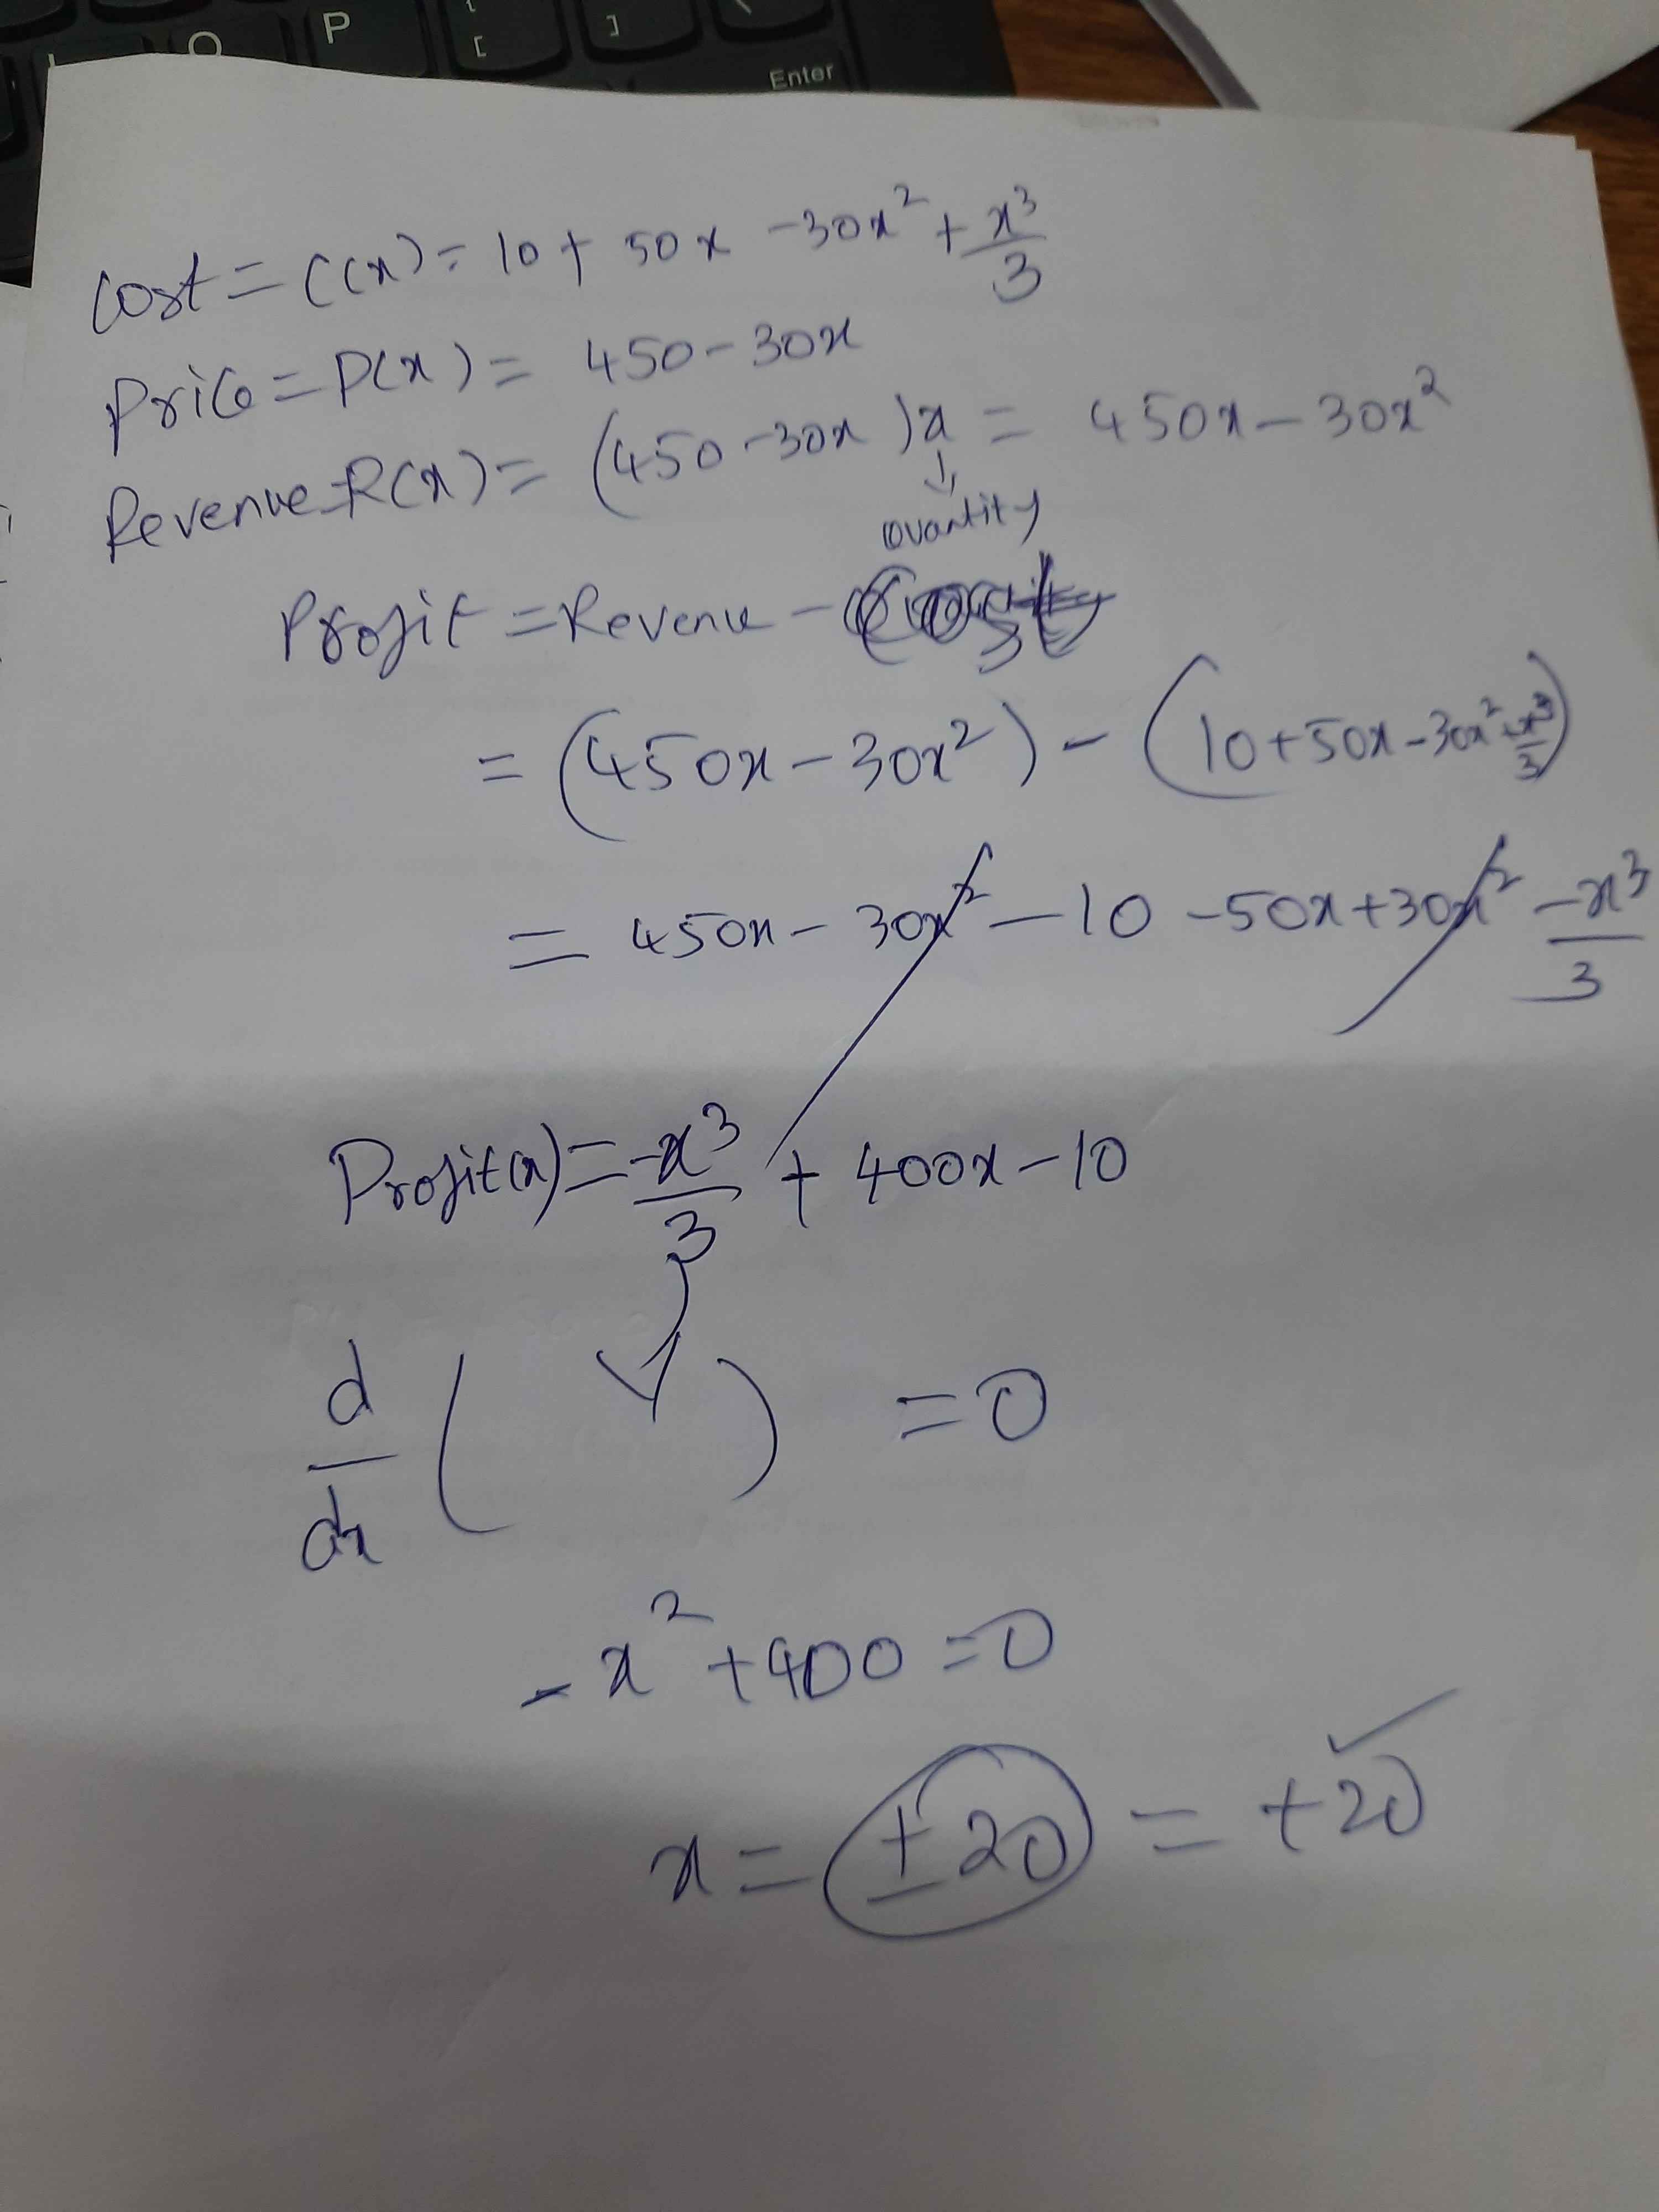 O P [ ] Enter
Cost = C(x) = 10 + 50x - 30x² + x³/3
Price = P(x) = 450 - 30x
Revenue = R(x) = (450 - 30x)x = 450x - 30x²
↓
Quantity
Profit = Revenue - Cost
= (450x - 30x²) - (10 + 50x - 30x² + x³/3)
= 450x - 30x² - 10 - 50x + 30x² - x³/3
Profit(x) = -x³/3 + 400x - 10
d/dx ( ) = 0
-x² + 400 = 0
x = ±20 = +20 ✓